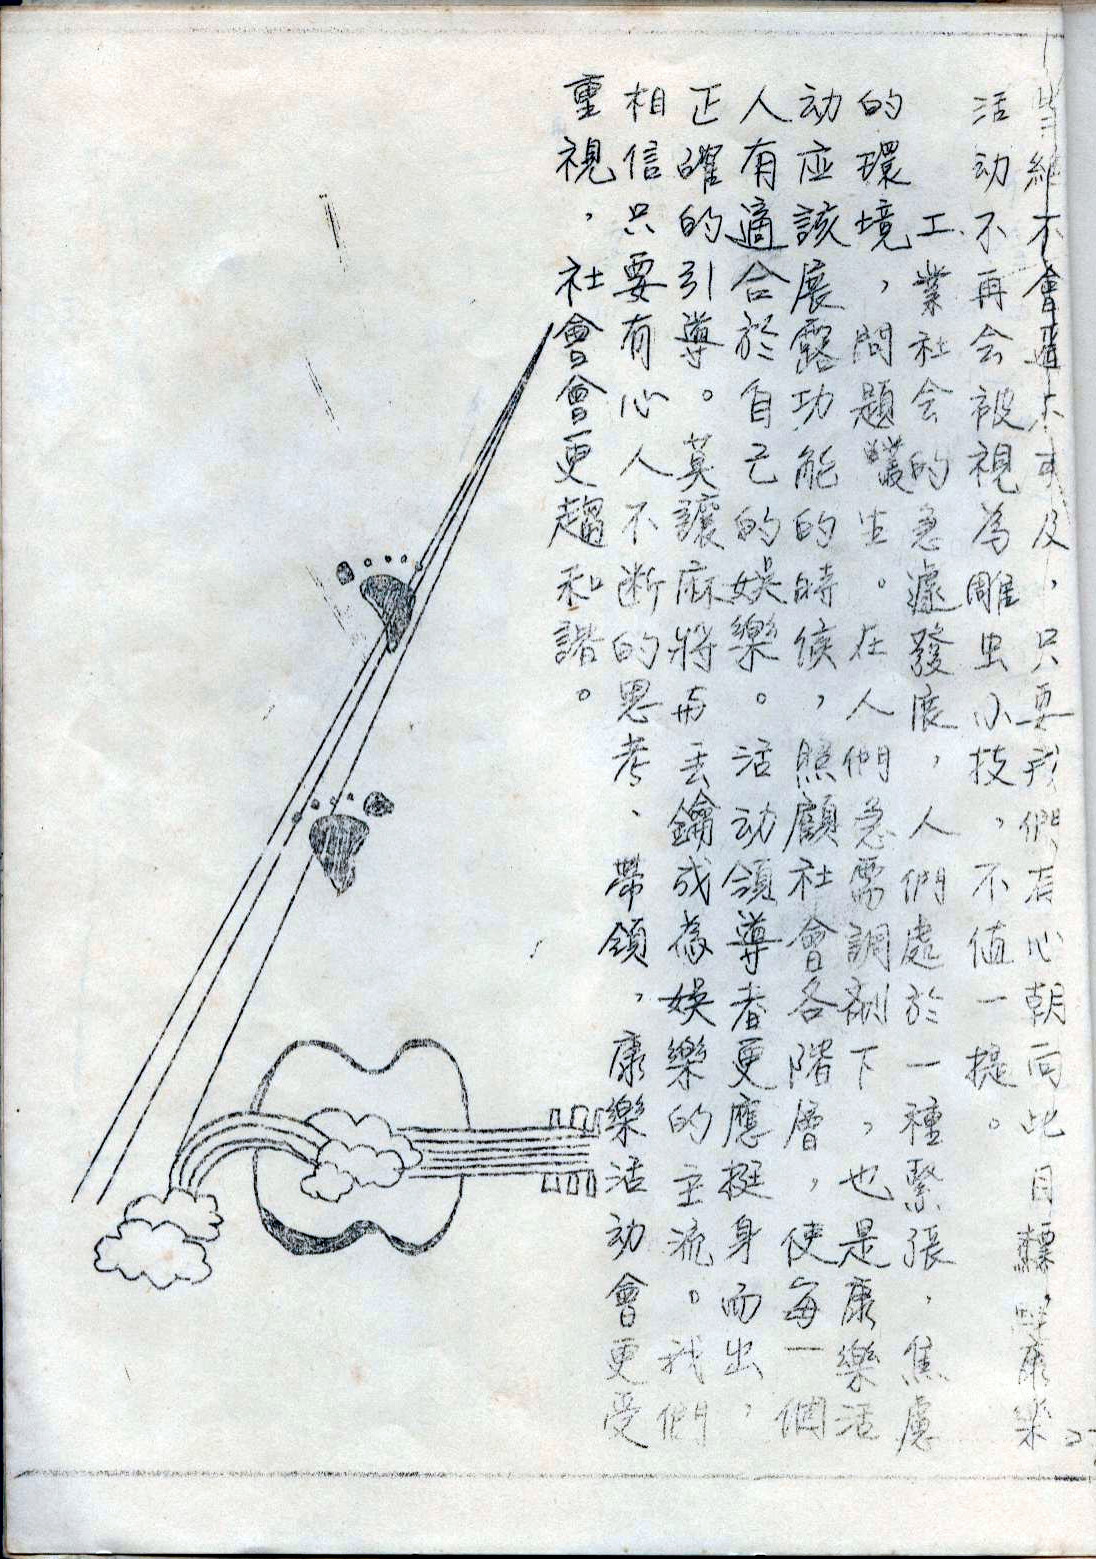 不會遭不及，只要我們有心朝向此目標，康樂
活动不再会被視為雕虫小技，不值一提。
工業社会的急遽發展，人們處於一種緊張，焦慮
的環境，問題叢生。在人們急需調劑下，也是康樂活
动应該展露功能的時候，照顧社會各階層，使每一個
人有適合於自己的娛樂。活动領導者更應挺身而出，
正確的引導。莫讓麻將布丟鑰成為娛樂的主流。我們
相信只要有心人不断的思考、帶領，康樂活动會更受
重視，社會會更趨和諧。